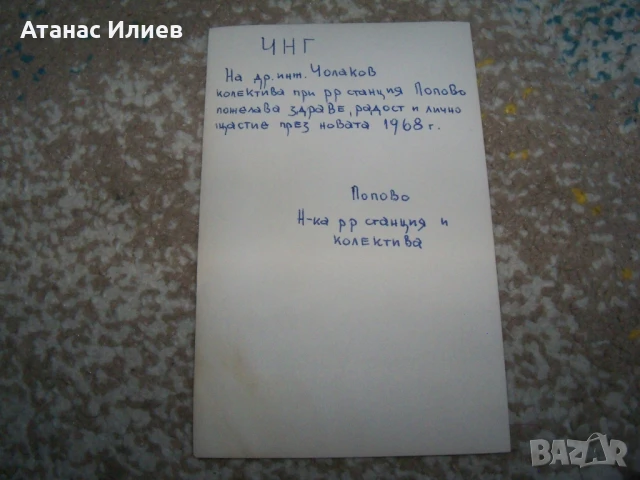 Атанас Илиев
ЧНГ
На др. инт. Чолаков
колектива при рр станция Попово
пожелава здраве, радост и лично
щастие през новата 1968 г.
Попово
Н-ка рр станция и
колектива
BAZAR